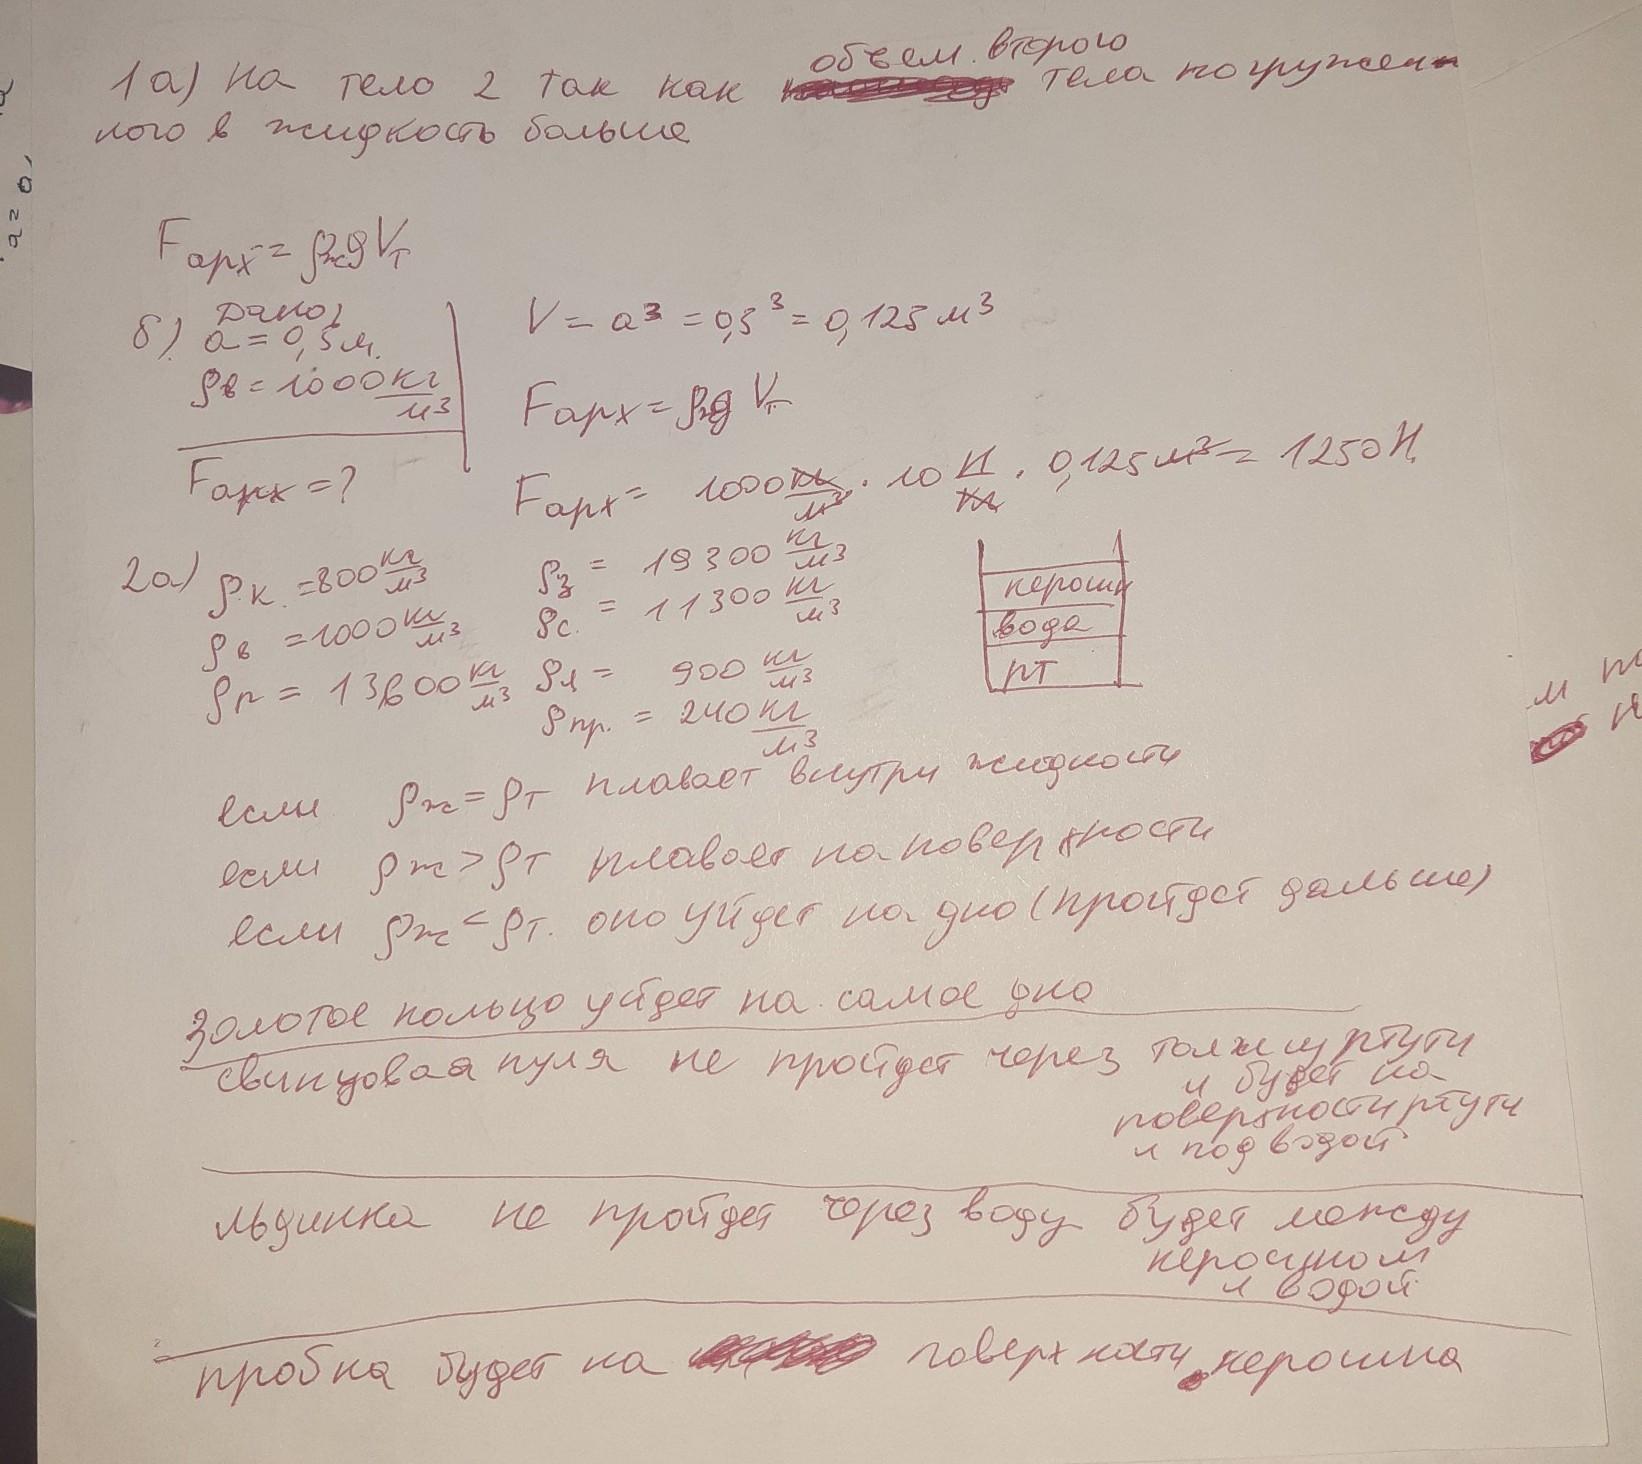 1а) На тело 2 так как объем второго тела погружен
ного в жидкость больше
Fарх = ρжgVт
б) Дано:
a = 0,5 м.
ρв = 1000 кг/м³
Fарх = ?
V = a³ = 0,5³ = 0,125 м³
Fарх = ρжg Vт
Fарх = 1000 кг/м³ · 10 Н/кг · 0,125 м³ = 1250 Н.
2а) ρк. = 800 кг/м³
ρв = 1000 кг/м³
ρр = 13600 кг/м³
ρз = 19300 кг/м³
ρс. = 11300 кг/м³
ρл = 900 кг/м³
ρпр. = 240 кг/м³
керосин
вода
рт
если ρж = ρт плавает внутри жидкости
если ρж > ρт плавает на поверхности
если ρж < ρт. оно уйдет на дно (пройдет дальше)
Золотое кольцо уйдет на самое дно
свинцовая пуля не пройдет через толжу ртути
и будет на
поверхности ртути
и под водой
льдинка не пройдет через воду будет между
керосином
и водой
пробка будет на поверхности керосина